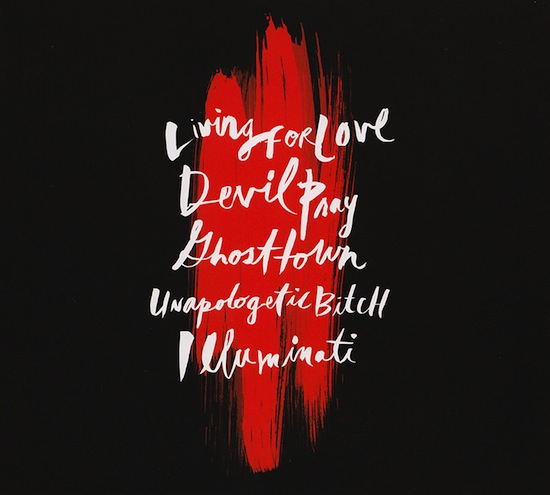 Living for Love
Devil Pray
Ghosttown
Unapologetic Bitch
Illuminati